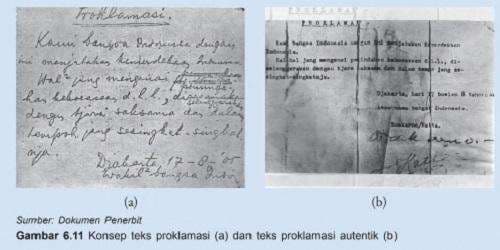 Proklamasi.
Kami bangsa Indonesia dengan
ini menjatakan kemerdekaan
Hal² jang mengenai
han kekoeasaan d.l.l.,
dengan tjara saksama dan dalam
tempoh jang sesingkat-singkat
nja.
Djakarta, 17-8-'05
Wakil² bangsa
(a)
PROKLAMASI
Kami bangsa Indonesia dengan ini menjatakan Kemerdekaan
Indonesia.
Hal-hal jang mengenai pemindahan kekoeasaan d.l.l., di-
selenggarakan dengan tjara saksama dan dalam tempo jang se-
singkat-singkatnja.
Djakarta, hari 17 boelan 8 tahoen
bangsa Indonesia.
Soekarno/Hatta.
(b)
Sumber: Dokumen Penerbit
Gambar 6.11 Konsep teks proklamasi (a) dan teks proklamasi autentik (b)